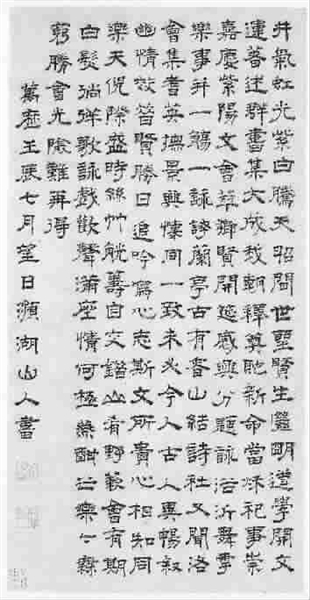 井氣虹光紫白騰天昭間世聖賢生繼明道學開文
運著述群書集大成我朝釋奠新命當秋祀事崇
嘉慶紫陽文會萃鄉賢開筵感興分題詠浴沂舞雩
樂事并一觴一詠誇蘭亭古有香山結詩社又聞洛
會集耆英撫景興懷同一致未必今人古人異暢敘
幽情效昔賢勝日追吟心志斯文所貴心相知同
樂天倪際盛時絲竹觥籌自交錯山肴野蔌會有期
白髮徜徉歌詠戲歡聲滿座情何極樂酣亡樂々
窮勝會光陰難再得
萬曆壬辰七月望日瀕湖山人書